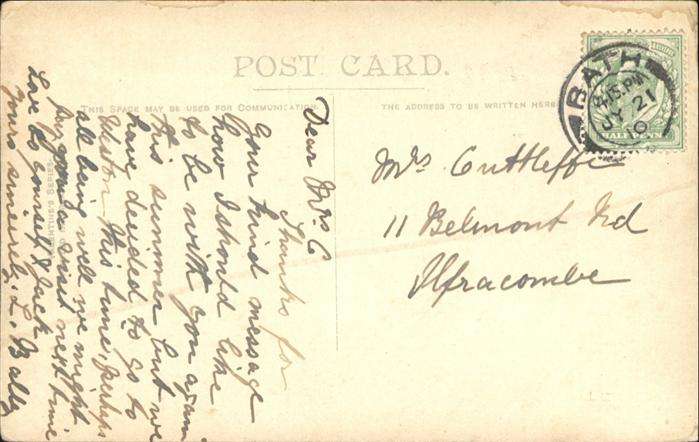 POST CARD.
THIS SPACE MAY BE USED FOR COMMUNICATION.
THE ADDRESS TO BE WRITTEN HERE
BATH
8.15 PM
JY 21
10
HALFPENNY
Mrs Cuttleffe
11 Belmont Rd
Ilfracombe
Dear Mrs C
Thanks for
your kind message
how I should like
to be with you again
this summer but we
have decided to go to
Weston this time, perhaps
all being well we might
pay you a visit next time
Love to yourself & Jack
yours sincerely, L. Bally
VALENTINE'S SERIES